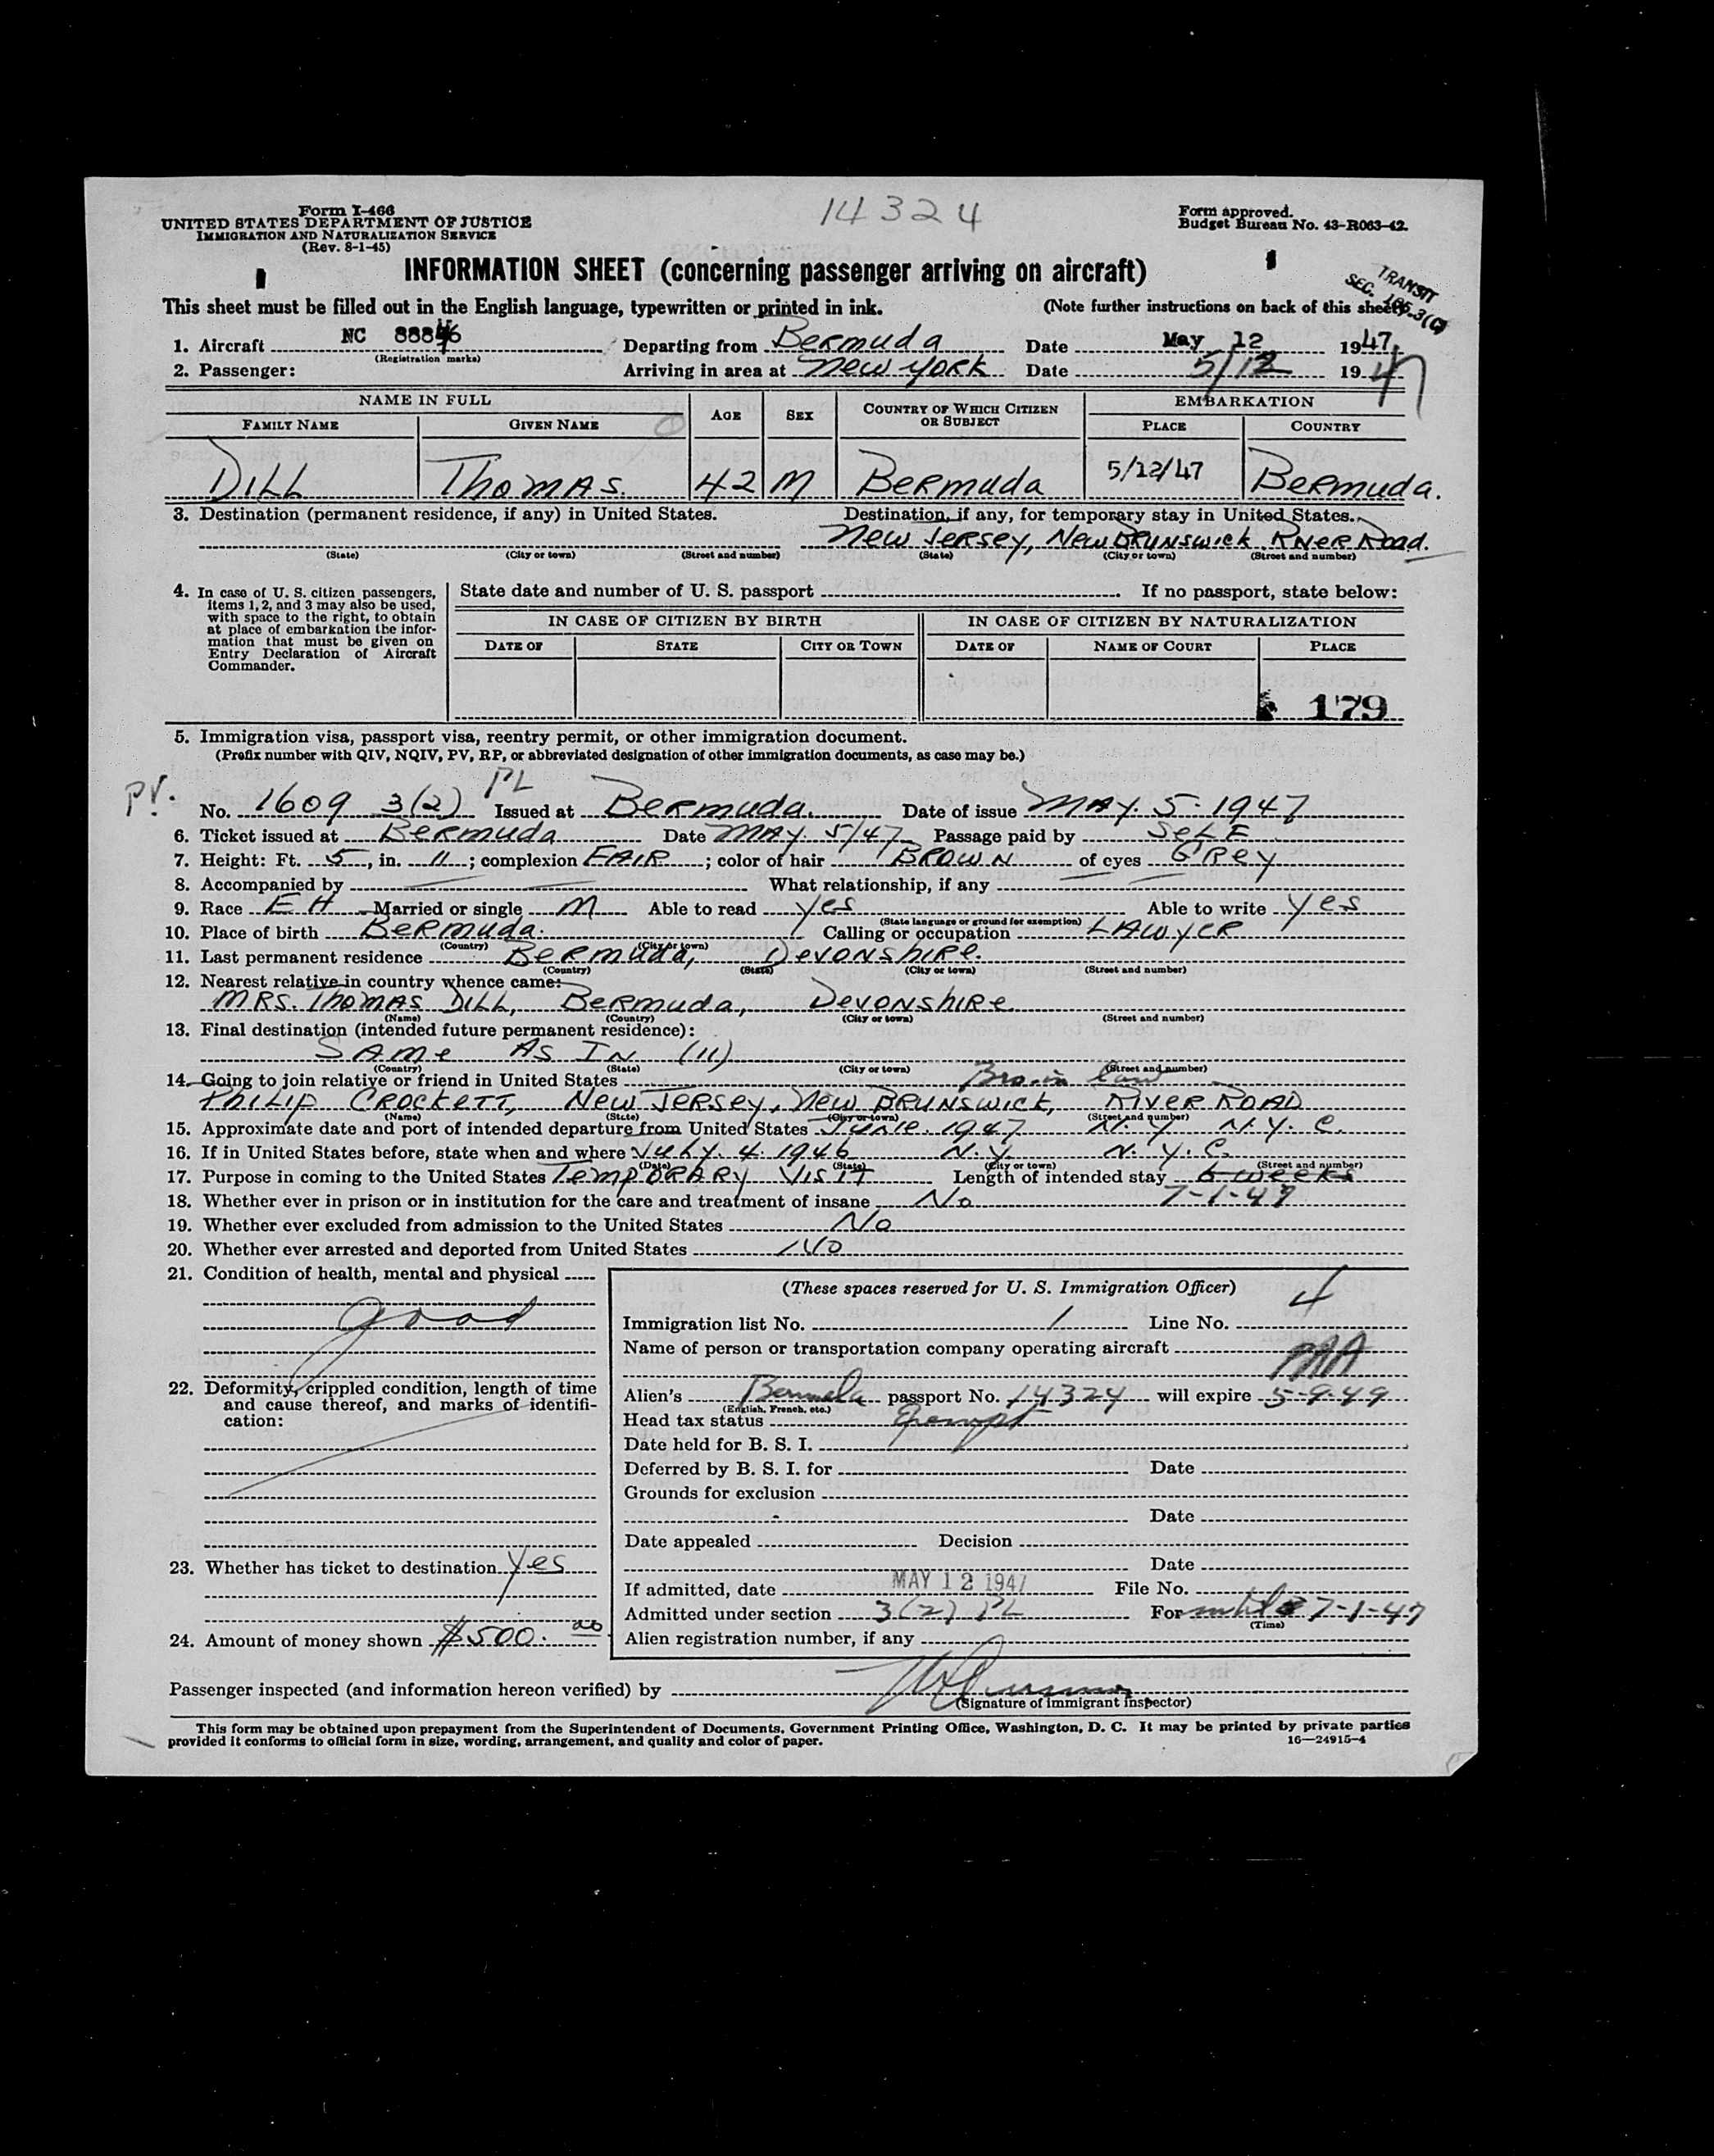 Form I-466
UNITED STATES DEPARTMENT OF JUSTICE
IMMIGRATION AND NATURALIZATION SERVICE
(Rev. 8-1-45)
14324
Form approved.
Budget Bureau No. 43-R063-42.
INFORMATION SHEET (concerning passenger arriving on aircraft)
TRANSIT
SEC.
This sheet must be filled out in the English language, typewritten or printed in ink. (Note further instructions on back of this sheet)
1. Aircraft NC Departing from Bermuda Date May 12 1947
(Registration marks)
2. Passenger: Arriving in area at New York Date 5/12 1947
NAME IN FULL AGE SEX COUNTRY OF WHICH CITIZEN OR SUBJECT EMBARKATION
FAMILY NAME GIVEN NAME PLACE COUNTRY
DILL Thomas. 42 M Bermuda 5/12/47 Bermuda.
3. Destination (permanent residence, if any) in United States. Destination, if any, for temporary stay in United States.
New Jersey, New Brunswick River Road.
(State) (City or town) (Street and number) (State) (City or town) (Street and number)
4. In case of U. S. citizen passengers, items 1, 2, and 3 may also be used, with space to the right, to obtain at place of embarkation the information that must be given on Entry Declaration of Aircraft Commander.
State date and number of U. S. passport If no passport, state below:
IN CASE OF CITIZEN BY BIRTH IN CASE OF CITIZEN BY NATURALIZATION
DATE OF STATE CITY OR TOWN DATE OF NAME OF COURT PLACE
179
5. Immigration visa, passport visa, reentry permit, or other immigration document.
(Prefix number with QIV, NQIV, PV, RP, or abbreviated designation of other immigration documents, as case may be.)
PV. No. 1609 3(2) PL Issued at Bermuda. Date of issue MAY. 5. 1947
6. Ticket issued at Bermuda Date MAY. 5/47 Passage paid by SELF
7. Height: Ft. 5, in. 11; complexion FAIR; color of hair BROWN of eyes GREY
8. Accompanied by What relationship, if any
9. Race EH Married or single M Able to read yes Able to write yes
(State language or ground for exemption)
10. Place of birth Bermuda. Calling or occupation LAWYER
(Country) (City or town)
11. Last permanent residence Bermuda, Devonshire.
(Country) (State) (City or town) (Street and number)
12. Nearest relative in country whence came:
MRS. Thomas DILL, Bermuda, Devonshire
(Name) (Country) (City or town) (Street and number)
13. Final destination (intended future permanent residence):
SAMe AS IN (11)
(Country) (State) (City or town) (Street and number)
14. Going to join relative or friend in United States Bro-in law
PHILIP CROCKETT, New Jersey, New BRUNSWICK, RIVER ROAD
(Name) (State) (City or town) (Street and number)
15. Approximate date and port of intended departure from United States June. 1947 N.Y. N.Y.C.
16. If in United States before, state when and where July. 4. 1946 N.Y. N.Y.C.
(Date) (State) (City or town) (Street and number)
17. Purpose in coming to the United States TempORARY VISIT Length of intended stay 6 weeks
7-1-47
18. Whether ever in prison or in institution for the care and treatment of insane No
19. Whether ever excluded from admission to the United States No
20. Whether ever arrested and deported from United States NO
21. Condition of health, mental and physical
good
22. Deformity, crippled condition, length of time and cause thereof, and marks of identification:
23. Whether has ticket to destination yes
24. Amount of money shown $500.00
(These spaces reserved for U. S. Immigration Officer)
Immigration list No. 1 Line No. 4
Name of person or transportation company operating aircraft PAA
Alien's Bermuda passport No. 14324 will expire 5-9-49
(English, French, etc.)
Head tax status Exempt
Date held for B. S. I.
Deferred by B. S. I. for Date
Grounds for exclusion
Date
Date appealed Decision
Date
If admitted, date MAY 12 1947 File No.
Admitted under section 3(2) PL For until 7-1-47
(Time)
Alien registration number, if any
Passenger inspected (and information hereon verified) by
(Signature of immigrant inspector)
This form may be obtained upon prepayment from the Superintendent of Documents, Government Printing Office, Washington, D. C. It may be printed by private parties
provided it conforms to official form in size, wording, arrangement, and quality and color of paper. 16—24915-4